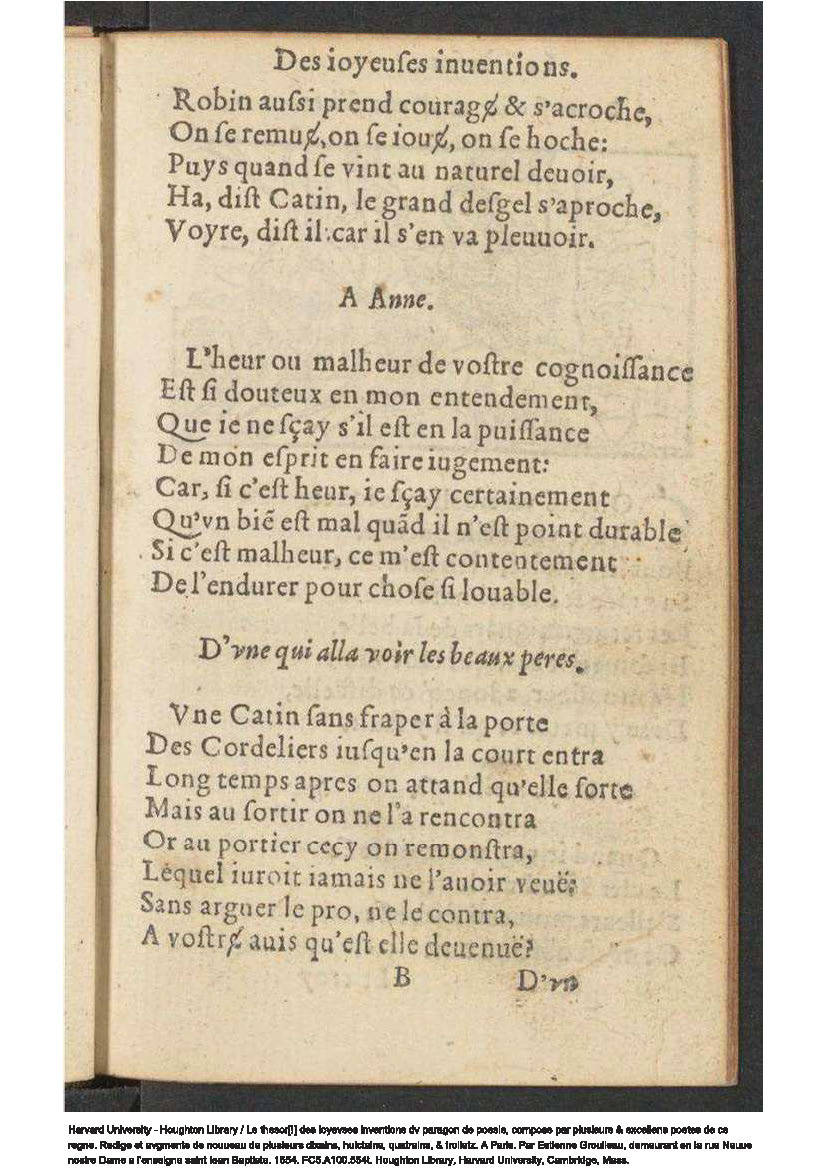 Des ioyeuſes inuentions.
Robin auſsi prend couragɇ & s'acroche,
On ſe remuɇ, on ſe iouɇ, on ſe hoche:
Puys quand ſe vint au naturel deuoir,
Ha, diſt Catin, le grand deſgel s'aproche,
Voyre, diſt il: car il s'en va pleuuoir.
A Anne.
L'heur ou malheur de voſtre cognoiſſance
Eſt ſi douteux en mon entendement,
Que ie ne ſçay s'il eſt en la puiſſance
De mon eſprit en faire iugement:
Car, ſi c'eſt heur, ie ſçay certainement
Qu'vn biẽ eſt mal quãd il n'eſt point durable
Si c'eſt malheur, ce m'eſt contentement
De l'endurer pour choſe ſi louable.
D'vne qui alla voir les beaux peres.
Vne Catin ſans fraper à la porte
Des Cordeliers iuſqu'en la court entra
Long temps apres on attand qu'elle ſorte
Mais au ſortir on ne l'a rencontra
Or au portier cecy on remonſtra,
Lequel iuroit iamais ne l'auoir veuë?
Sans arguer le pro, ne le contra,
A voſtrɇ auis qu'eſt elle deuenuë?
B D'vn
Harvard University - Houghton Library / Le thesor[!] des ioyevses inventions dv paragon de poesie, compose par plusieurs & excellens poetes de ce
regne. Redige et avgmente de nouueau de plusieurs dixains, huictains, quatrains, & trolletz. A Paris. Par Estienne Groulleau, demeurant en la rue Neuue
nostre Dame a l'enseigne saint Iean Baptiste. 1554. FC5.A100.554t. Houghton Library, Harvard University, Cambridge, Mass.